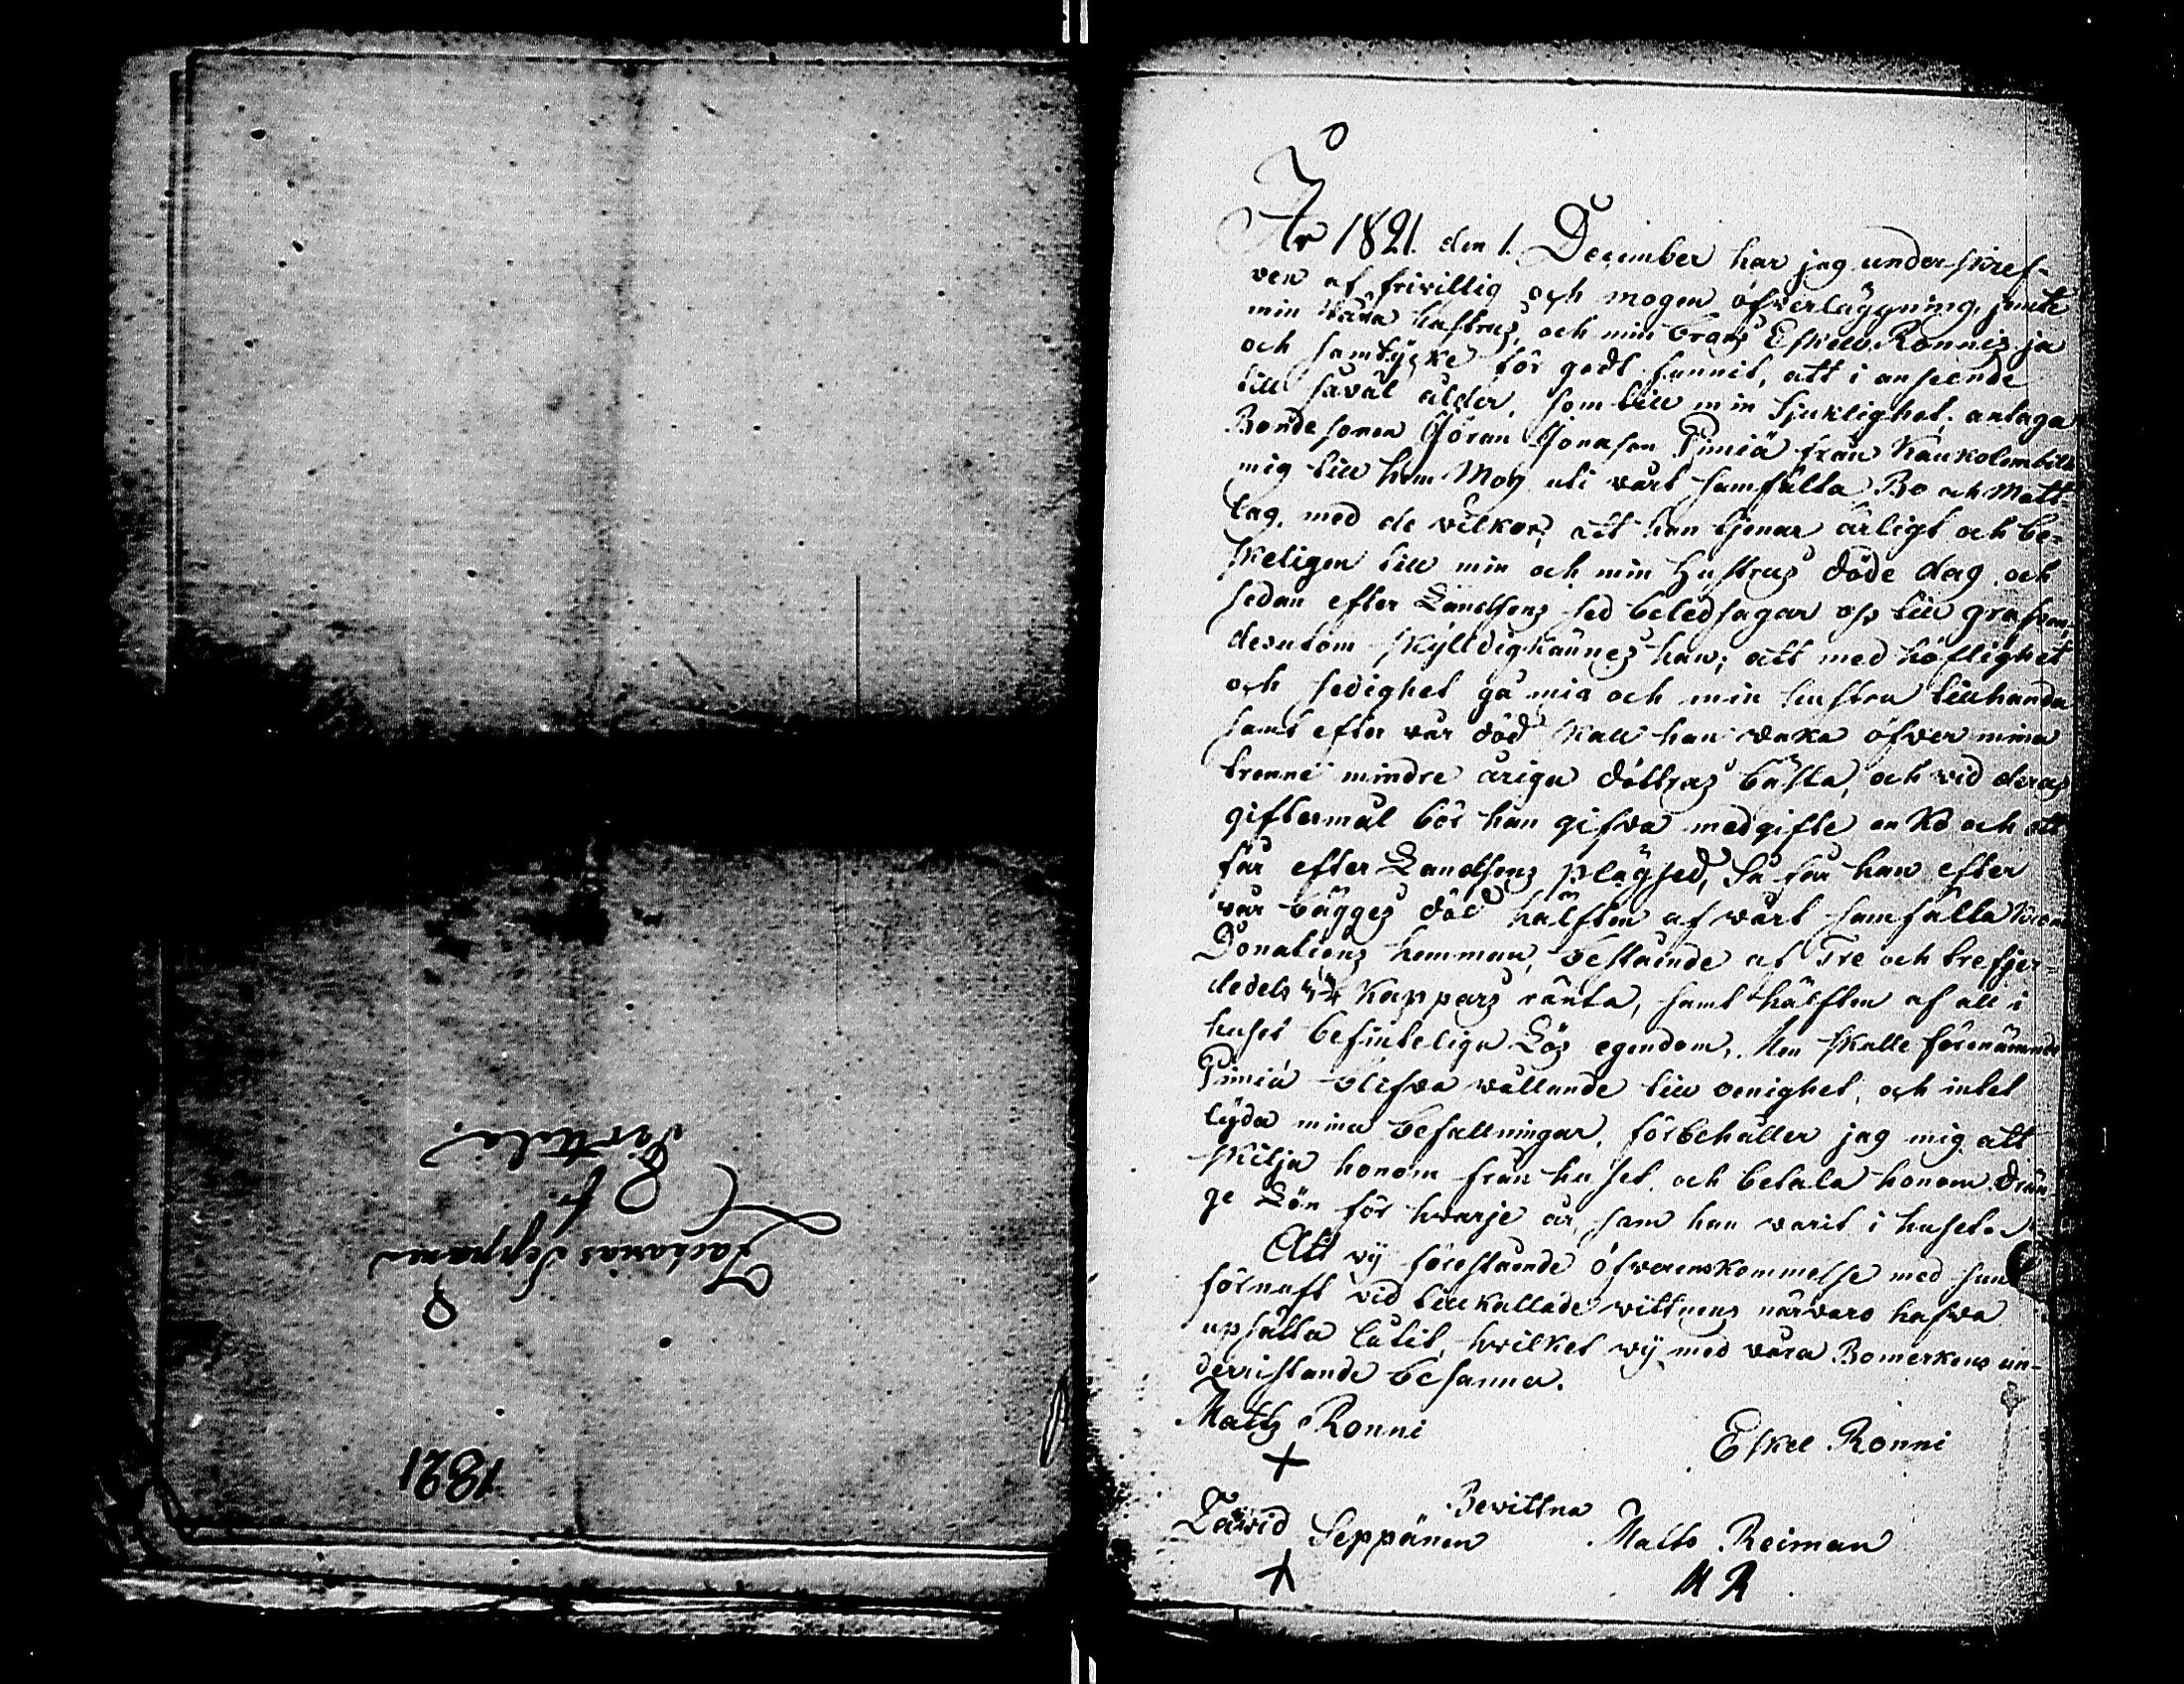 Zacharias Seppänen
Pertula
1821
År 1821 den 1. December har jag underskref-
ven af frivillig och mogen öfverläggning, jemte
min kära hustrus, och min brors Eskell Ronnis ja
och samtycke för godt funnit, att i anseende
till såväl ålder, som till min Sjuklighet, antaga
Bondesonen Göran Jonasson Pimiä från Kaukola
mig till hem Måg uti vårt samfälta Bo och Matt
lag, med de vilkor, att han tjenar ärligt och be-
skeligen till min och min Hustrus döde dag, och
sedan efter Landsens sed beledsagar oss till grafven,
desutom skylldigkännes han, att med höflighet
och sedighet gå mig och min hustru tillhanda
samt efter vår död skall han vaka öfver mina
trenne mindre åriga döttras bästa, och vid deras
giftermål bör han gifva medgifte en Ko och ett
får efter Landsens plägsed, Så får han efter
vår bägges död hälften af vårt samfälta
Donations hemman, bestående af Tre och trefjer-
dedels 3 3/4 Kappars ränta, samt hälften af all i
huset befinteliga Lös egendom. Men skulle förenämnde
Pimiä blifva vållande till oenighet, och intet
lyda mina befallningar, förbehåller jag mig att
skilja honom från huset, och betala honom Drän-
ge Lön för hvarje år, som han varit i huset.
Att vij förestående öfverenskommelse med sunt
förnuft vid tillkallade vittnens närvaro hafva
upsätta låtit, hvilket vij med våra Bomerkens un-
derristande besannar.
Matts Ronni Eskel Ronni
Bevittna
David Seppänen Matts Reiman
M R